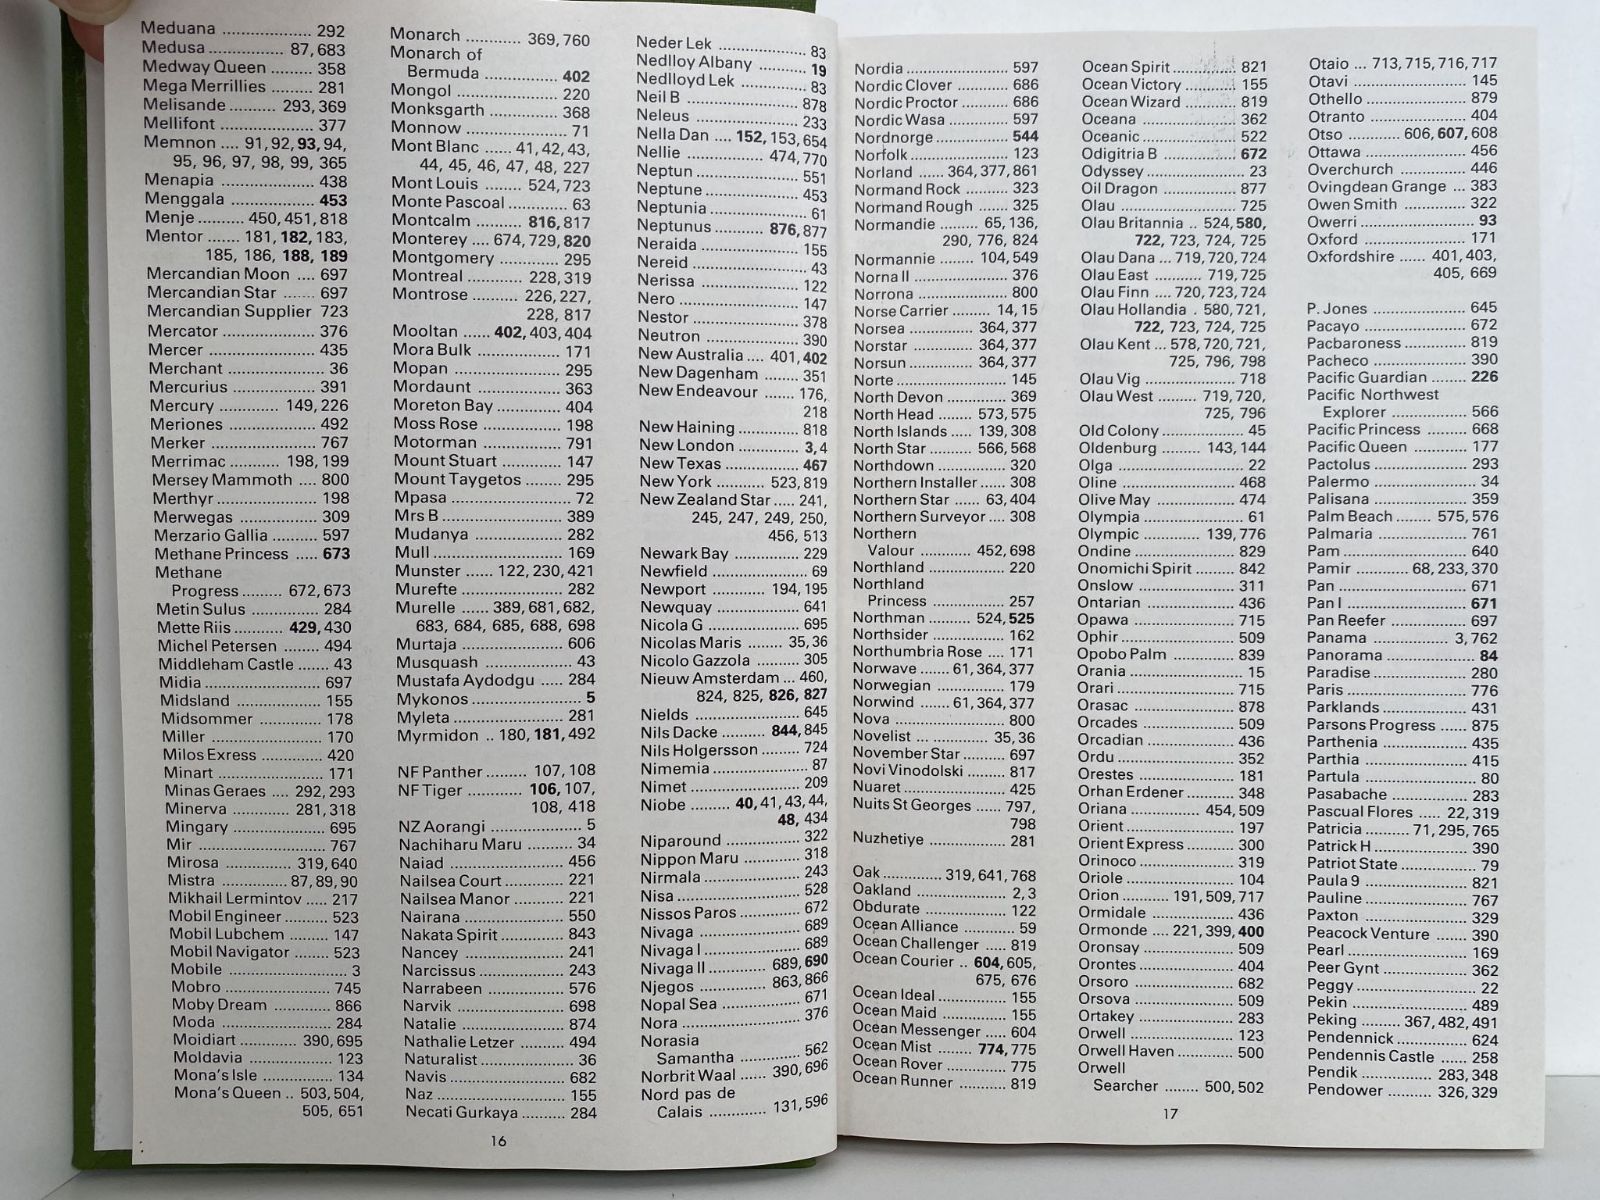 Meduana .................. 292
Medusa ............... 87, 683
Medway Queen ......... 358
Mega Merrillies ......... 281
Melisande ......... 293, 369
Mellifont .................. 377
Memnon .... 91, 92, 93, 94,
95, 96, 97, 98, 99, 365
Menapia .................. 438
Menggala ................. 453
Menje .......... 450, 451, 818
Mentor ....... 181, 182, 183,
185, 186, 188, 189
Mercandian Moon .... 697
Mercandian Star ....... 697
Mercandian Supplier 723
Mercator .................. 376
Mercer ..................... 435
Merchant .................. 36
Mercurius ................. 391
Mercury ............ 149, 226
Meriones .................. 492
Merker ..................... 767
Merrimac ........... 198, 199
Mersey Mammoth .... 800
Merthyr .................... 198
Merwegas ................ 309
Merzario Gallia ......... 597
Methane Princess ..... 673
Methane
Progress .......... 672, 673
Metin Sulus .............. 284
Mette Riis ........... 429, 430
Michel Petersen ........ 494
Middleham Castle ....... 43
Midia ....................... 697
Midsland .................. 155
Midsommer .............. 178
Miller ....................... 170
Milos Exress ............. 420
Minart ...................... 171
Minas Geraes .... 292, 293
Minerva ............ 281, 318
Mingary ................... 695
Mir .......................... 767
Mirosa .............. 319, 640
Mistra .............. 87, 89, 90
Mikhail Lermintov ..... 217
Mobil Engineer ......... 523
Mobil Lubchem ........ 147
Mobil Navigator ........ 523
Mobile ........................ 3
Mobro ...................... 745
Moby Dream ............ 866
Moda ....................... 284
Moidiart ............ 390, 695
Moldavia .................. 123
Mona's Isle ............... 134
Mona's Queen .. 503, 504,
505, 651
Monarch ........... 369, 760
Monarch of
Bermuda ............... 402
Mongol .................... 220
Monksgarth ............. 368
Monnow ................... 71
Mont Blanc ...... 41, 42, 43,
44, 45, 46, 47, 48, 227
Mont Louis ........ 524, 723
Monte Pascoal ........... 63
Montcalm .......... 816, 817
Monterey .... 674, 729, 820
Montgomery ............ 295
Montreal ........... 228, 319
Montrose .......... 226, 227,
228, 817
Mooltan ..... 402, 403, 404
Mora Bulk ................ 171
Mopan ..................... 295
Mordaunt ................. 363
Moreton Bay ............ 404
Moss Rose ............... 198
Motorman ................ 791
Mount Stuart ............ 147
Mount Taygetos ........ 295
Mpasa ...................... 72
Mrs B ....................... 389
Mudanya .................. 282
Mull ......................... 169
Munster ...... 122, 230, 421
Murefte .................... 282
Murelle ...... 389, 681, 682,
683, 684, 685, 688, 698
Murtaja .................... 606
Musquash ................. 43
Mustafa Aydodgu ..... 284
Mykonos .................... 5
Myleta ...................... 281
Myrmidon .. 180, 181, 492
NF Panther ......... 107, 108
NF Tiger ............ 106, 107,
108, 418
NZ Aorangi ................. 5
Nachiharu Maru ......... 34
Naiad ....................... 456
Nailsea Court ............ 221
Nailsea Manor .......... 221
Nairana .................... 550
Nakata Spirit ............. 843
Nancey .................... 241
Narcissus ................. 243
Narrabeen ................ 576
Narvik ...................... 698
Natalie ..................... 874
Nathalie Letzer .......... 494
Naturalist .................. 36
Navis ....................... 682
Naz .......................... 155
Necati Gurkaya ......... 284
Neder Lek .................. 83
Nedlloy Albany .......... 19
Nedlloyd Lek ............. 83
Neil B ....................... 878
Neleus ..................... 233
Nella Dan .... 152, 153, 654
Nellie ................ 474, 770
Neptun ..................... 551
Neptune ................... 453
Neptunia ................... 61
Neptunus ........... 876, 877
Neraida .................... 155
Nereid ....................... 43
Nerissa ..................... 122
Nero ........................ 147
Nestor ...................... 378
Neutron .................... 390
New Australia .... 401, 402
New Dagenham ........ 351
New Endeavour ........ 176,
218
New Haining ............. 818
New London ............. 3, 4
New Texas ................ 467
New York .......... 523, 819
New Zealand Star ..... 241,
245, 247, 249, 250,
456, 513
Newark Bay .............. 229
Newfield .................... 69
Newport ............ 194, 195
Newquay .................. 641
Nicola G ................... 695
Nicolas Maris ........ 35, 36
Nicolo Gazzola .......... 305
Nieuw Amsterdam ... 460,
824, 825, 826, 827
Nields ...................... 645
Nils Dacke ......... 844, 845
Nils Holgersson ......... 724
Nimemia ................... 87
Nimet ...................... 209
Niobe ......... 40, 41, 43, 44,
48, 434
Niparound ................ 322
Nippon Maru ............ 318
Nirmala .................... 243
Nisa ......................... 528
Nissos Paros ............. 672
Nivaga ..................... 689
Nivaga I ................... 689
Nivaga II ............ 689, 690
Njegos .............. 863, 866
Nopal Sea ................ 671
Nora ........................ 376
Norasia
Samantha .............. 562
Norbrit Waal ...... 390, 696
Nord pas de
Calais ............. 131, 596
16
Nordia ...................... 597
Nordic Clover ........... 686
Nordic Proctor .......... 686
Nordic Wasa ............. 597
Nordnorge ................ 544
Norfolk ..................... 123
Norland ...... 364, 377, 861
Normand Rock .......... 323
Normand Rough ....... 325
Normandie .......... 65, 136,
290, 776, 824
Normannie ........ 104, 549
Norna II .................... 376
Norrona ................... 800
Norse Carrier ......... 14, 15
Norsea .............. 364, 377
Norstar .............. 364, 377
Norsun .............. 364, 377
Norte ....................... 145
North Devon ............. 369
North Head ........ 573, 575
North Islands ..... 139, 308
North Star .......... 566, 568
Northdown ............... 320
Northern Installer ...... 308
Northern Star ...... 63, 404
Northern Surveyor .... 308
Northern
Valour ............ 452, 698
Northland ................. 220
Northland
Princess ................. 257
Northman .......... 524, 525
Northsider ................ 162
Northumbria Rose .... 171
Norwave ..... 61, 364, 377
Norwegian ............... 179
Norwind ...... 61, 364, 377
Nova ........................ 800
Novelist ................ 35, 36
November Star .......... 697
Novi Vinodolski ......... 817
Nuaret ...................... 425
Nuits St Georges ...... 797,
798
Nuzhetiye ................. 281
Oak .............. 319, 641, 768
Oakland ................... 2, 3
Obdurate .................. 122
Ocean Alliance ........... 59
Ocean Challenger ..... 819
Ocean Courier .. 604, 605,
675, 676
Ocean Ideal .............. 155
Ocean Maid .............. 155
Ocean Messenger ..... 604
Ocean Mist ........ 774, 775
Ocean Rover ............. 775
Ocean Runner ........... 819
Ocean Spirit .............. 821
Ocean Victory ........... 155
Ocean Wizard ........... 819
Oceana .................... 362
Oceanic .................... 522
Odigitria B ................ 672
Odyssey .................... 23
Oil Dragon ................ 877
Olau ........................ 725
Olau Britannia .. 524, 580,
722, 723, 724, 725
Olau Dana .. 719, 720, 724
Olau East ........... 719, 725
Olau Finn .... 720, 723, 724
Olau Hollandia . 580, 721,
722, 723, 724, 725
Olau Kent ... 578, 720, 721,
725, 796, 798
Olau Vig ................... 718
Olau West .......... 719, 720,
725, 796
Old Colony ................. 45
Oldenburg .......... 143, 144
Olga ......................... 22
Oline ........................ 468
Olive May ................. 474
Olympia .................... 61
Olympic ............ 139, 776
Ondine ..................... 829
Onomichi Spirit ......... 842
Onslow ..................... 311
Ontarian ................... 436
Opawa ..................... 715
Ophir ....................... 509
Opobo Palm .............. 839
Orania ....................... 15
Orari ........................ 715
Orasac ..................... 878
Orcades .................... 509
Orcadian .................. 436
Ordu ........................ 352
Orestes .................... 181
Orhan Erdener .......... 348
Oriana ............... 454, 509
Orient ...................... 197
Orient Express .......... 300
Orinoco .................... 319
Oriole ....................... 104
Orion ........... 191, 509, 717
Ormidale .................. 436
Ormonde .... 221, 399, 400
Oronsay ................... 509
Orontes .................... 404
Orsoro ..................... 682
Orsova ..................... 509
Ortakey .................... 283
Orwell ...................... 123
Orwell Haven ............ 500
Orwell
Searcher ........ 500, 502
Otaio ... 713, 715, 716, 717
Otavi ........................ 145
Othello ..................... 879
Otranto .................... 404
Otso ............ 606, 607, 608
Ottawa ..................... 456
Overchurch .............. 446
Ovingdean Grange ... 383
Owen Smith ............. 322
Owerri ...................... 93
Oxford ..................... 171
Oxfordshire ...... 401, 403,
405, 669
P. Jones ................... 645
Pacayo ..................... 672
Pacbaroness ............. 819
Pacheco ................... 390
Pacific Guardian ........ 226
Pacific Northwest
Explorer ................ 566
Pacific Princess ......... 668
Pacific Queen ........... 177
Pactolus ................... 293
Palermo .................... 34
Palisana ................... 359
Palm Beach ........ 575, 576
Palmaria ................... 761
Pam ......................... 640
Pamir ............ 68, 233, 370
Pan .......................... 671
Pan I ........................ 671
Pan Reefer ................ 697
Panama ................. 3, 762
Panorama ................. 84
Paradise ................... 280
Paris ........................ 776
Parklands ................. 431
Parsons Progress ...... 875
Parthenia .................. 435
Parthia ..................... 415
Partula ...................... 80
Pasabache ................ 283
Pascual Flores .... 22, 319
Patricia .......... 71, 295, 765
Patrick H .................. 390
Patriot State ............... 79
Paula 9 ..................... 821
Pauline ..................... 767
Paxton ..................... 329
Peacock Venture ....... 390
Pearl ........................ 169
Peer Gynt ................. 362
Peggy ....................... 22
Pekin ....................... 489
Peking ......... 367, 482, 491
Pendennick .............. 624
Pendennis Castle ...... 258
Pendik ............... 283, 348
Pendower .......... 326, 329
17